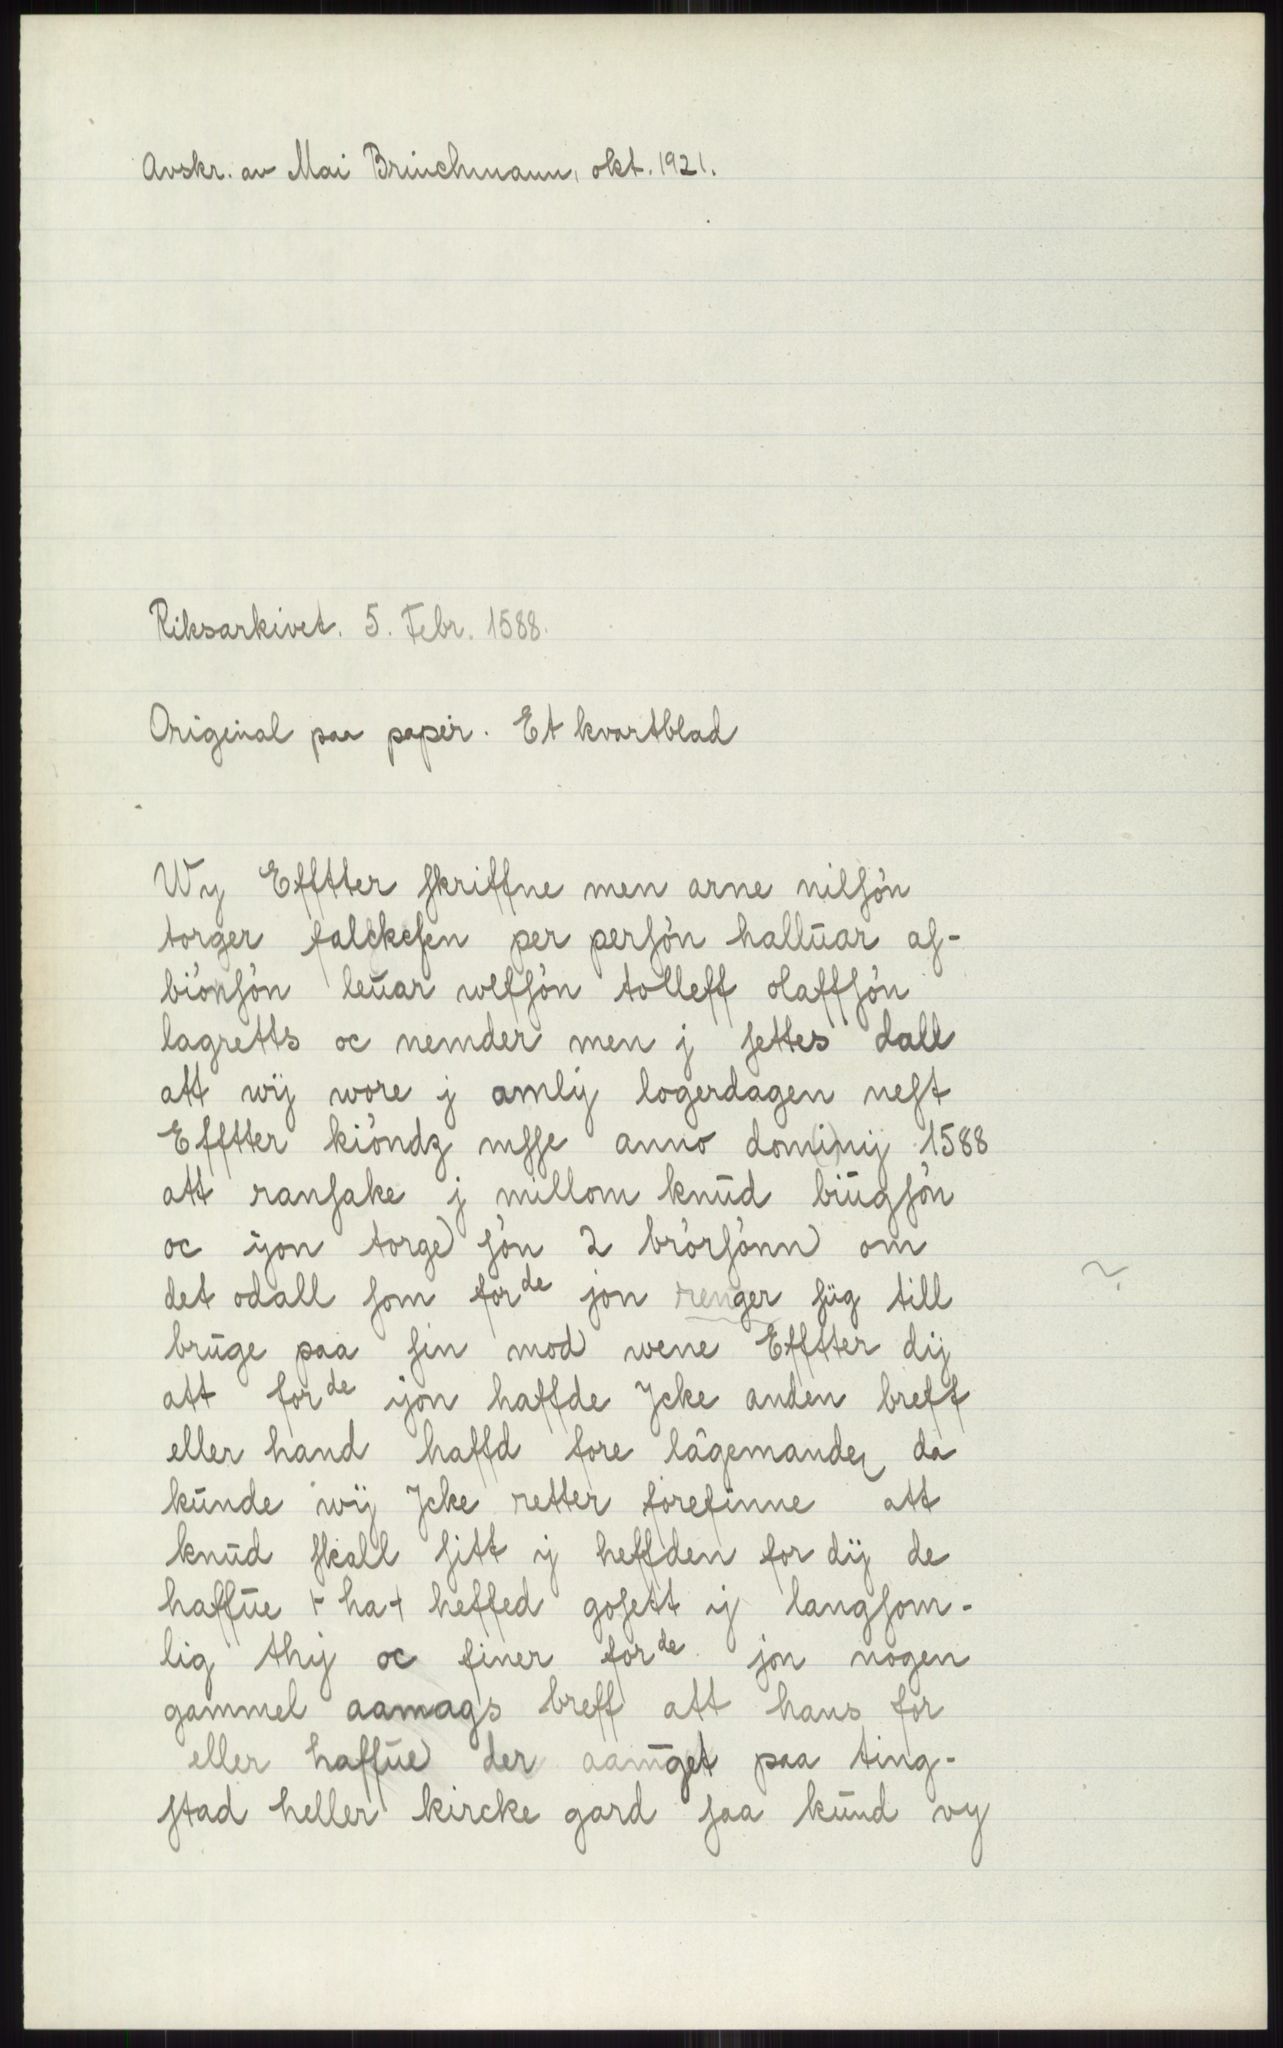 Avskr. av Mai Brinchmann, okt. 1921.
Riksarkivet. 5. Febr. 1588.
Original paa papir. Et kvartblad
Wy Efftter skriffne men arne nilsøn
torger falckesen per persøn halluar as-
biønsøn leuar wlfsøn tolleff olaffsøn
lagretts oc nemder men j settes dall
att wij wore j amlij logerdagen nest
Efftter kiøndz msse anno dominij 1588
att ransake j millom knud biugsøn
oc ijon torge søn 2 brørsønn om
det odall som forde jon renger sig till
bruge paa sin mod wene Efftter dij
att forde ijon haffde Jcke anden breff
eller hand haffd fore lagemande da
kunde wij Jcke retter forefinne att
knud skall sitt ij heffden for dij de
haffue + ha + heffed gosett ij langsom-
lig thij oc finer forde jon nogen
gammel aamags breff att hans for
eller haffue der aamget paa ting-
stad heller kircke gard saa kund vy